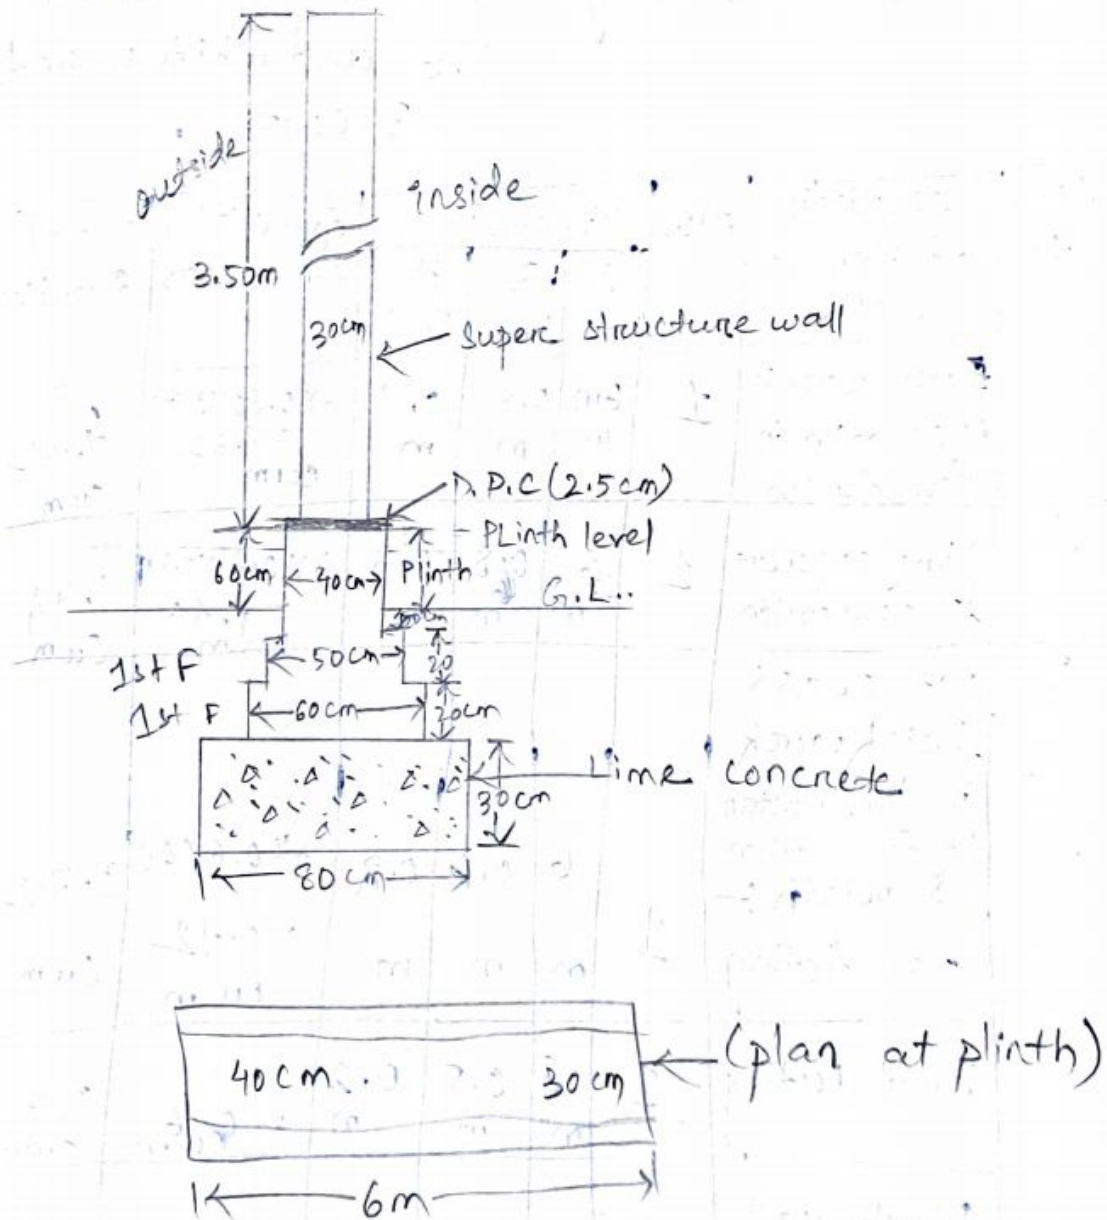 outside
inside
3.50m
30cm
Superc structure wall
D.P.C (2.5cm)
PLinth level
60cm
40cm
Plinth
G.L..
1st F
50cm
20
1st F
60cm
20cm
Lime concrete
30cm
80cm
40cm.
30cm
(plan at plinth)
6m